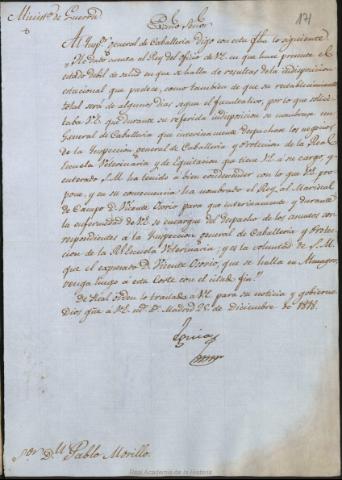 Minist.o de Guerra
171
Ex.mo Señor
Al Insp.or general de Caballería digo con esta fha lo siguiente
"He dado cuenta al Rey del oficio de V.E. en que hace presente el
estado debil de salud en que se halla de resultas de la indisposicion
estacional que padece, como tambien de que su restablecimiento
total será de algunos dias segun el facultativo, por lo que solici-
taba V.E. que durante su referida indisposicion se nombrase un
General de Caballeria que interinamente despachase los negocios
de la Inspeccion general de Caballeria y Proteccion de la Real
Escuela Veterinaria, y de Equitacion que tiene V.E. a su cargo, y en-
terado S.M. ha tenido a bien condescender con lo que V.E. pro-
pone, y en su consecuencia ha nombrado el Rey al Mariscal
de Campo D. Vicente Osorio para que interinamente y durante
la enfermedad de V.E. se encargue del despacho de los asuntos cor-
respondientes a la Inspeccion general de Caballeria y Protec-
cion de la Rl. Escuela Veterinaria; y es la voluntad de S.M.
que el expresado D. Vicente Osorio, que se halla en Almagro,
venga luego a esta Corte con el citado fin."
De Real orden lo traslado a V.E. para su noticia y gobierno
Dios gue a V.E. m.s a.s Madrid 26 de diciembre de 1818.
Eguia
S.or D.n Pablo Morillo.
Real Academia de la Historia